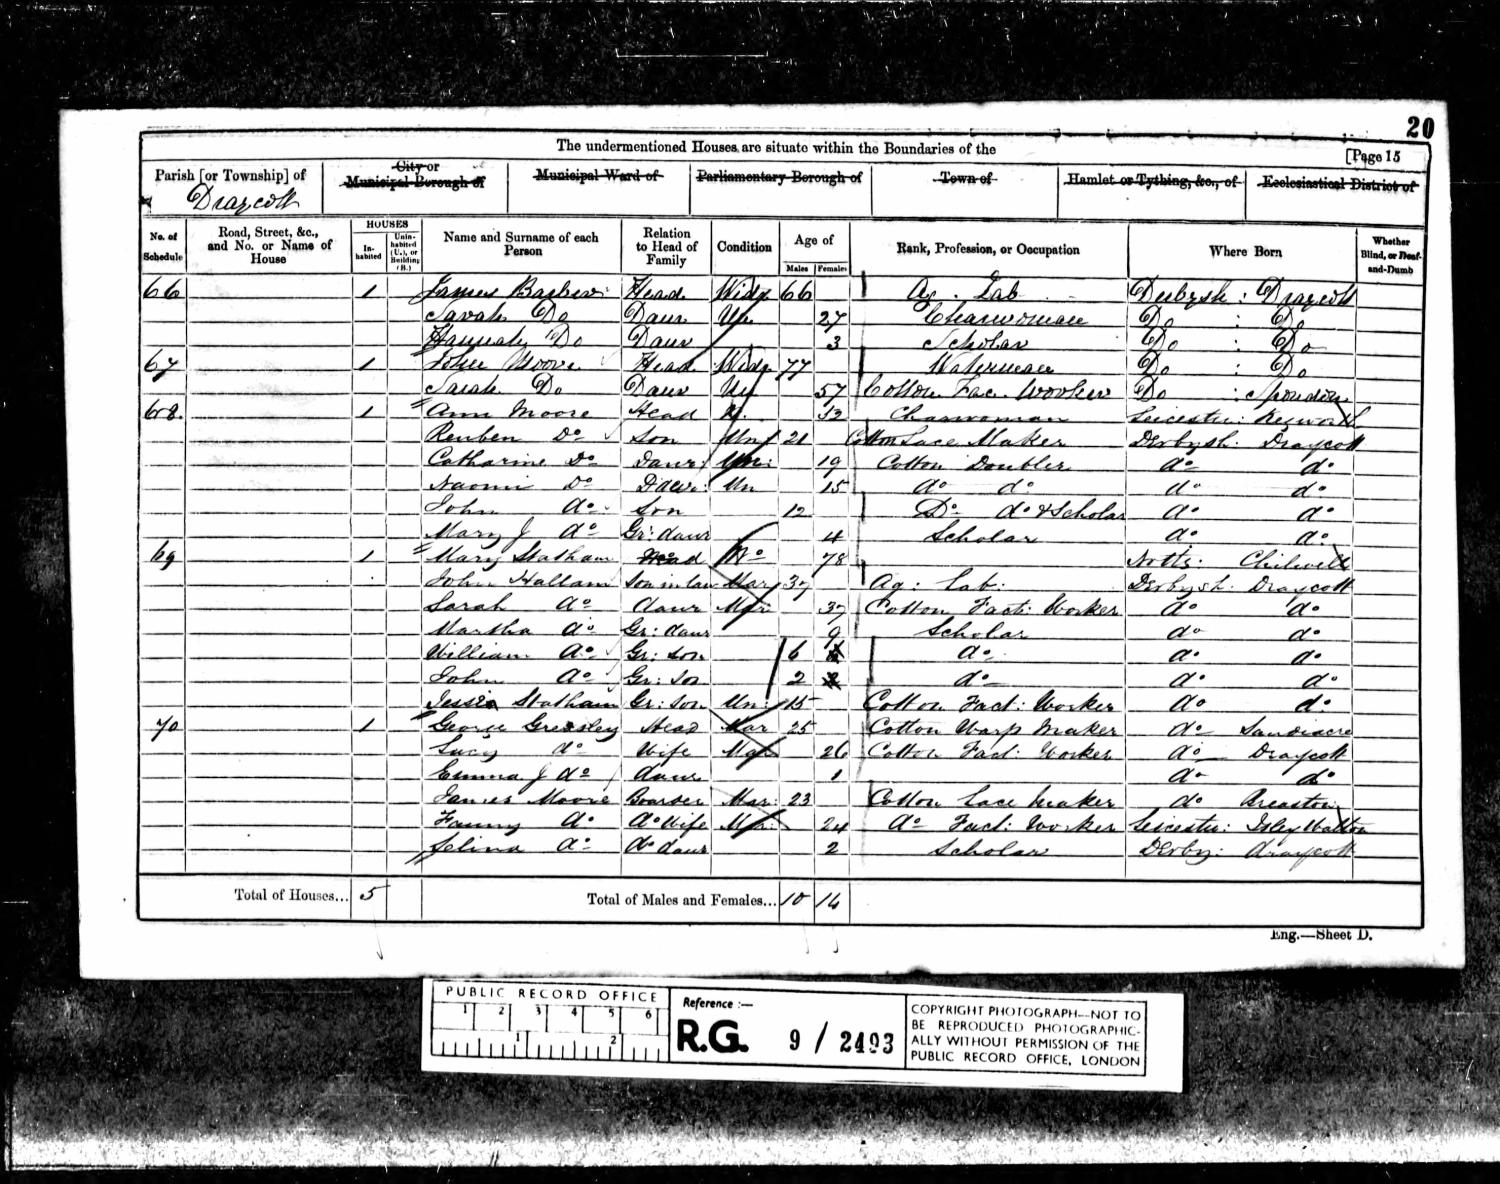 20
The undermentioned Houses are situate within the Boundaries of the
[Page 15
Parish [or Township] of
Draycott
City or Municipal Borough of
Municipal Ward of
Parliamentary Borough of
Town of
Hamlet or Tything, &c., of
Ecclesiastical District of
No. of Schedule
Road, Street, &c., and No. or Name of House
HOUSES
In-habited
Unin-habited (U.), or Building (B.)
Name and Surname of each Person
Relation to Head of Family
Condition
Age of
Males Females
Rank, Profession, or Occupation
Where Born
Whether Blind, or Deaf-and-Dumb
66 1 James Barber Head Widr 66 Ag. Lab Derbysh: Draycott
Sarah Do Daur Un 27 Charwoman Do : Do
Hannah Do Daur 3 Scholar Do : Do
67 1 John Moore Head Widr 77 Waterman Do : Do
Sarah Do Daur Un 57 Cotton Fac. Worker Do : Spondon
68. 1 Ann Moore Head 52 Charwoman Leicester: Kegworth
Reuben Do Son Un 21 Cotton Lace Maker Derbysh: Draycott
Catharine Do Daur: Un: 19 Cotton Doubler do do
Naomi Do Daur: Un 15 do do do do
John do Son 12 Do do & Scholar do do
Mary J do Gr: daur 4 Scholar do do
69 1 Mary Statham Head Wo 78 Notts: Chilwell
John Hallam Son in law Mar 37 Ag: Lab: Derbysh: Draycott
Sarah do daur Mar 37 Cotton Fact: Worker do do
Martha do Gr: daur 9 Scholar do do
William do Gr: son 6 do do do
John do Gr: son 2 do do do
Statham Gr: son Un: 15 Cotton Fact: Worker do do
70 1 George Gressley Head Mar 25 Cotton Warp Maker do Sandiacre
Lucy do Wife Mar 26 Cotton Fact: Worker do Draycott
Emma J do daur 1 do do
James Moore Boarder Mar: 23 Cotton Lace Maker do Breaston
Fanny do do Wife Mar: 24 do Fact: Worker Leicester: Isley Walton
Selina do do daur 2 Scholar Derby: Draycott
Total of Houses... 5
Total of Males and Females... 10 14
Eng.—Sheet D.
PUBLIC RECORD OFFICE
1 2 3 4 5 6
1 2
Reference :—
R.G. 9 / 2493
COPYRIGHT PHOTOGRAPH—NOT TO
BE REPRODUCED PHOTOGRAPHIC-
ALLY WITHOUT PERMISSION OF THE
PUBLIC RECORD OFFICE, LONDON